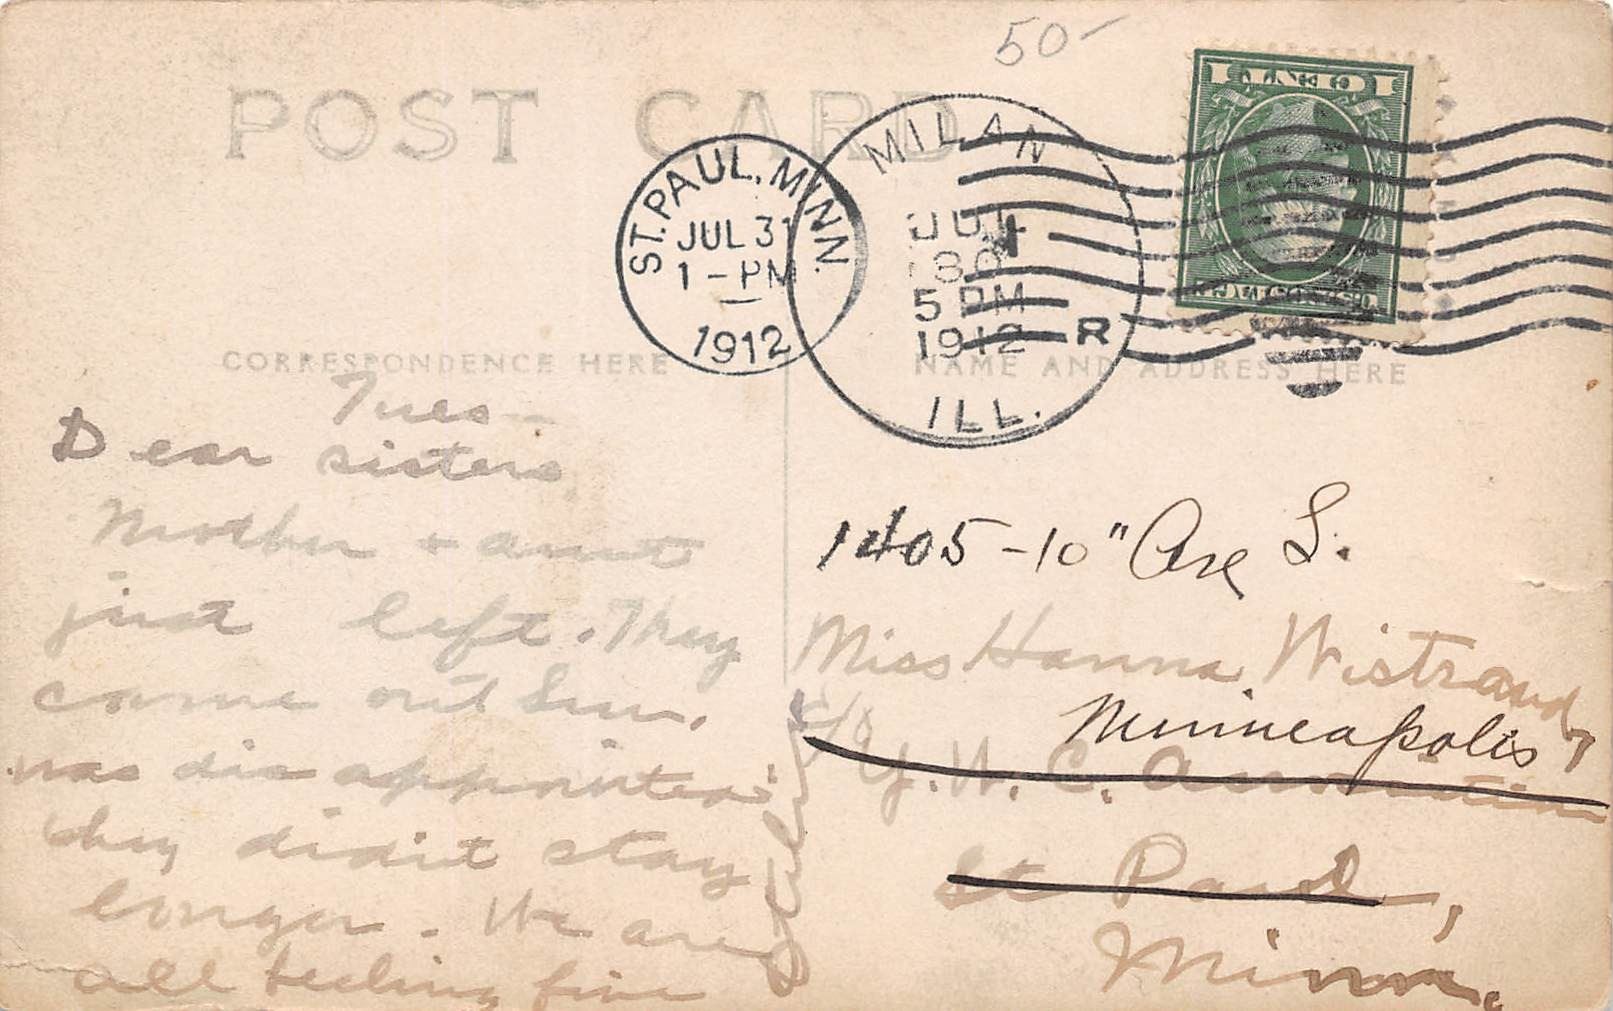 50-
POST CARD
ST. PAUL, MINN.
JUL 31
1-PM
1912
MILAN
JUL
30
5 PM
1912
R
ILL.
CORRESPONDENCE HERE
NAME AND ADDRESS HERE
Tues-
Dear sisters
Mother + aunt
just left. They
came out Sun.
was disappointed
they didnt stay
longer. We are
all feeling fine
1405-10" Ave S.
Miss Hanna Wistrand
Minneapolis
c/o Y.W.C. Association
St Paul,
Minn.